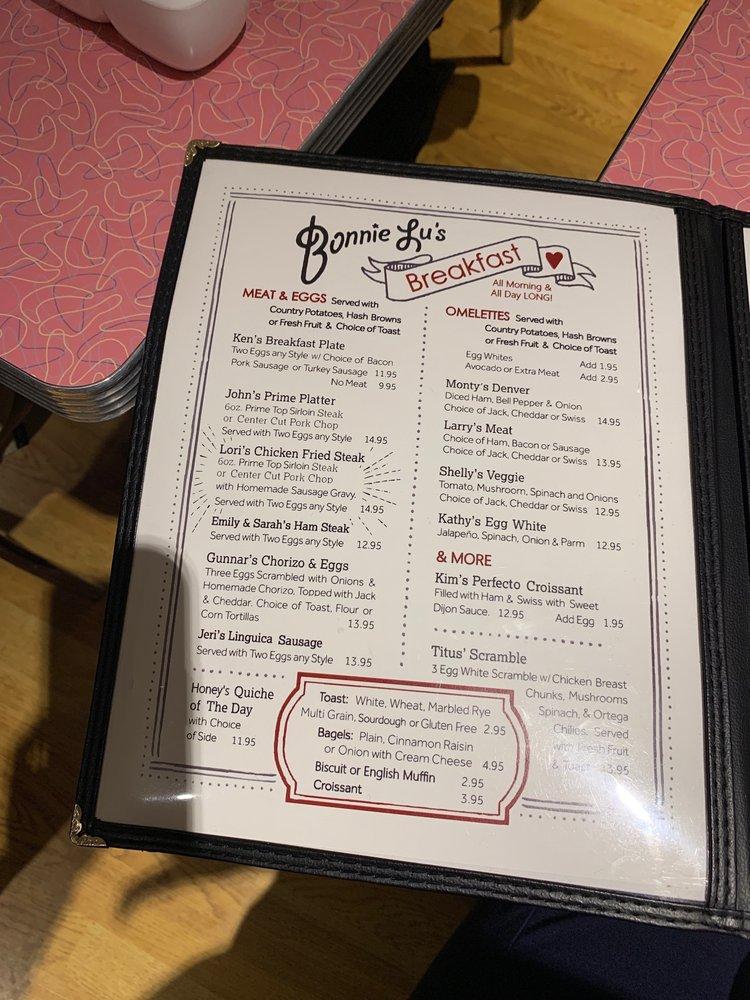 Bonnie Lu's
Breakfast
All Morning &
All Day LONG!
MEAT & EGGS Served with
Country Potatoes, Hash Browns
or Fresh Fruit & Choice of Toast
Ken's Breakfast Plate
Two Eggs any Style w/ Choice of Bacon
Pork Sausage or Turkey Sausage 11.95
No Meat 9.95
John's Prime Platter
6oz. Prime Top Sirloin Steak
or Center Cut Pork Chop
Served with Two Eggs any Style 14.95
Lori's Chicken Fried Steak
6oz. Prime Top Sirloin Steak
or Center Cut Pork Chop
with Homemade Sausage Gravy.
Served with Two Eggs any Style 14.95
Emily & Sarah's Ham Steak
Served with Two Eggs any Style 12.95
Gunnar's Chorizo & Eggs
Three Eggs Scrambled with Onions &
Homemade Chorizo, Topped with Jack
& Cheddar. Choice of Toast, Flour or
Corn Tortillas 13.95
Jeri's Linguica Sausage
Served with Two Eggs any Style 13.95
Honey's Quiche
of The Day
with Choice
of Side 11.95
OMELETTES Served with
Country Potatoes, Hash Browns
or Fresh Fruit & Choice of Toast
Egg Whites Add 1.95
Avocado or Extra Meat Add 2.95
Monty's Denver
Diced Ham, Bell Pepper & Onion
Choice of Jack, Cheddar or Swiss 14.95
Larry's Meat
Choice of Ham, Bacon or Sausage
Choice of Jack, Cheddar or Swiss 13.95
Shelly's Veggie
Tomato, Mushroom, Spinach and Onions
Choice of Jack, Cheddar or Swiss 12.95
Kathy's Egg White
Jalapeño, Spinach, Onion & Parm 12.95
& MORE
Kim's Perfecto Croissant
Filled with Ham & Swiss with Sweet
Dijon Sauce. 12.95 Add Egg 1.95
Titus' Scramble
3 Egg White Scramble w/ Chicken Breast
Chunks, Mushrooms
Spinach, & Ortega
Chilies. Served
with Fresh Fruit
& Toast 13.95
Toast: White, Wheat, Marbled Rye
Multi Grain, Sourdough or Gluten Free 2.95
Bagels: Plain, Cinnamon Raisin
or Onion with Cream Cheese 4.95
Biscuit or English Muffin 2.95
Croissant 3.95